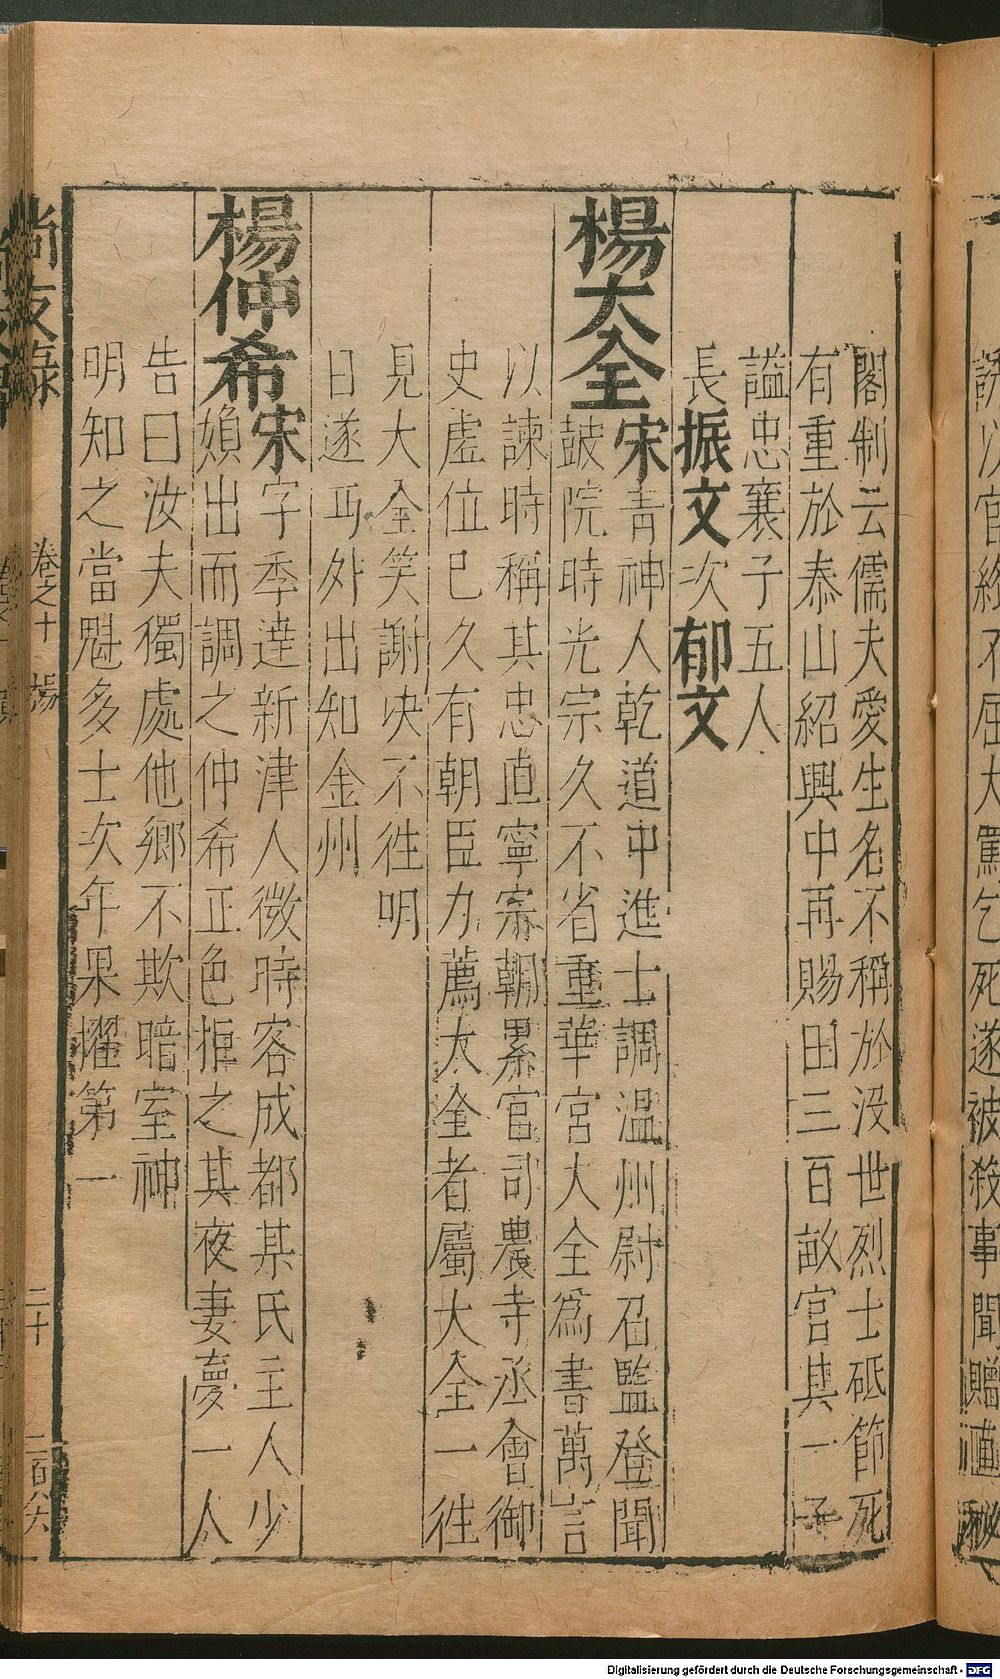 誘以官終不屈大罵乞死遂被殺事聞贈直秘
閣制云儒夫愛生名不稱於没世烈士砥節死
有重於泰山紹興中再賜田三百畝官其一子
諡忠襄子五人
長振文次郁文
楊大全宋青神人乾道中進士調溫州尉召監登聞
鼓院時光宗久不省重華宮大全爲書萬言
以諫時稱其忠直寧宗朝累官司農寺丞會御
史虚位巳久有朝臣力薦大全者屬大全一往
見大全笑謝决不徃明
日遂丐外出知金州
楊仲希宋字季達新津人微時客成都某氏主人少
婦出而調之仲希正色拒之其夜妻夢一人
告曰汝夫獨處他鄉不欺暗室神
明知之當魁多士次年果擢第一
尚友錄 卷之十 楊 二十 二百八六
Digitalisierung gefördert durch die Deutsche Forschungsgemeinschaft - DFG